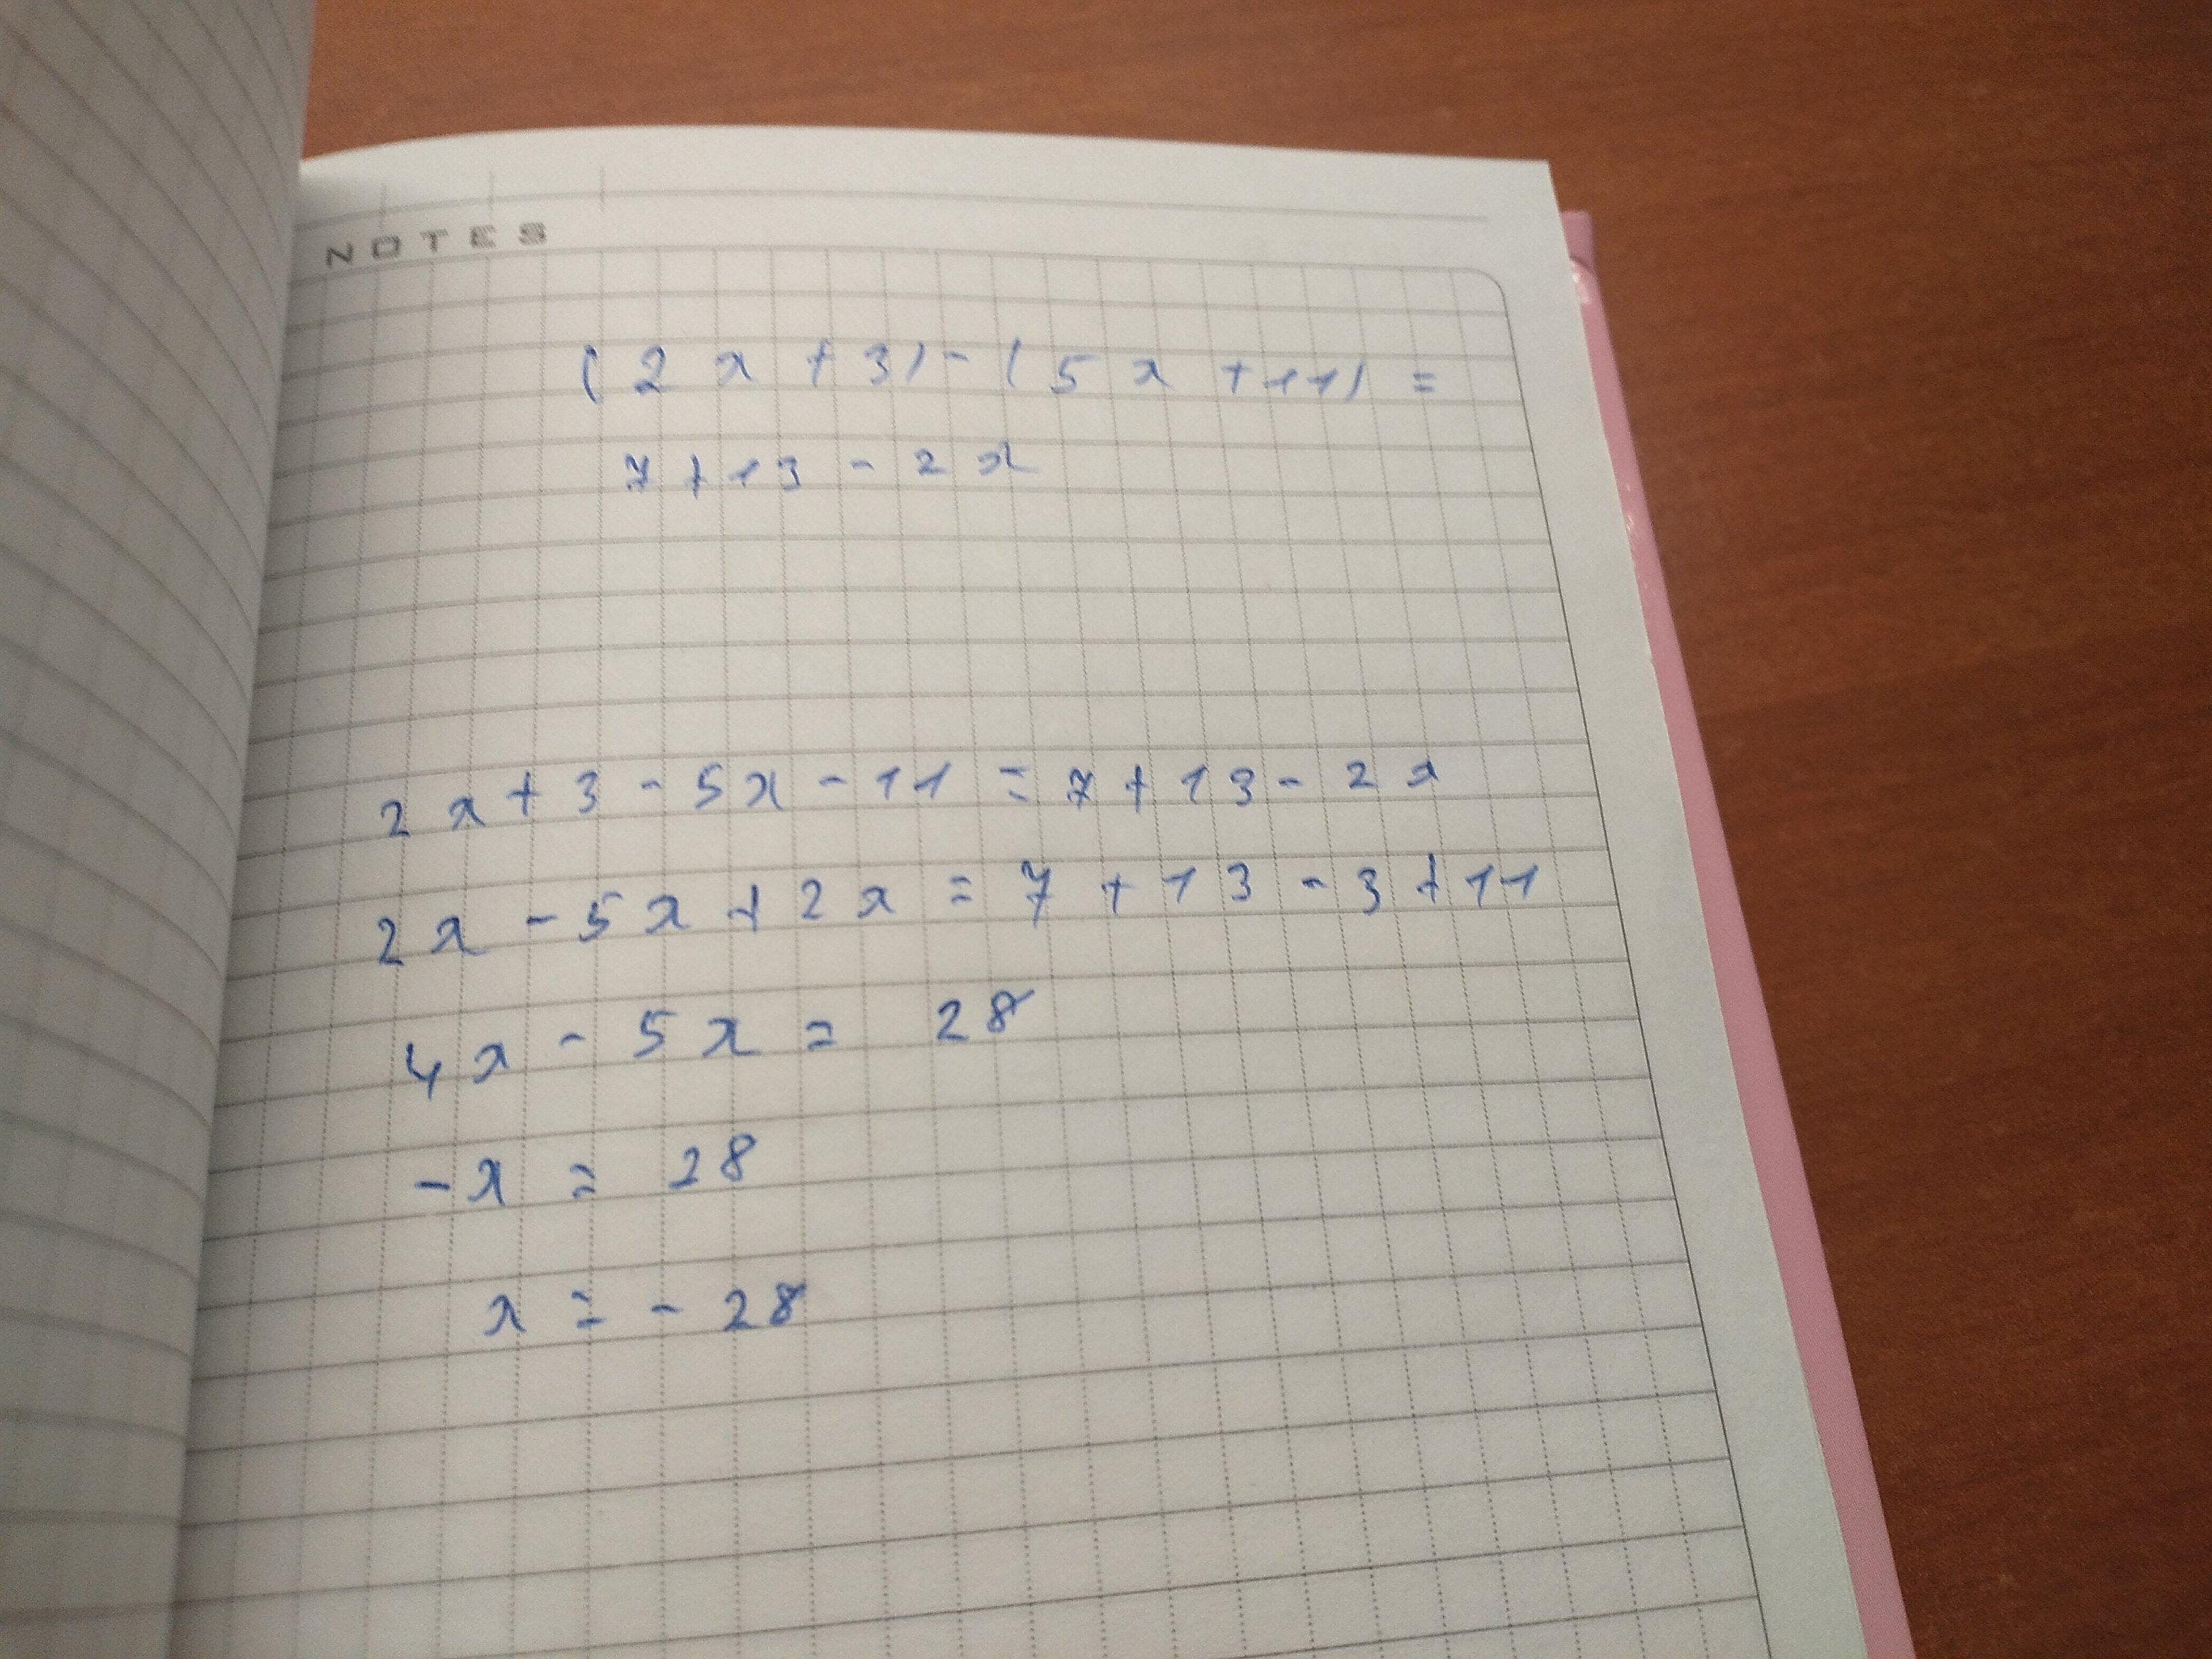 NOTES
(2x+3)-(5x+11)=
7+13-2x
2x+3-5x-11=7+13-2x
2x-5x+2x=7+13-3+11
4x-5x=28
-x=28
x=-28